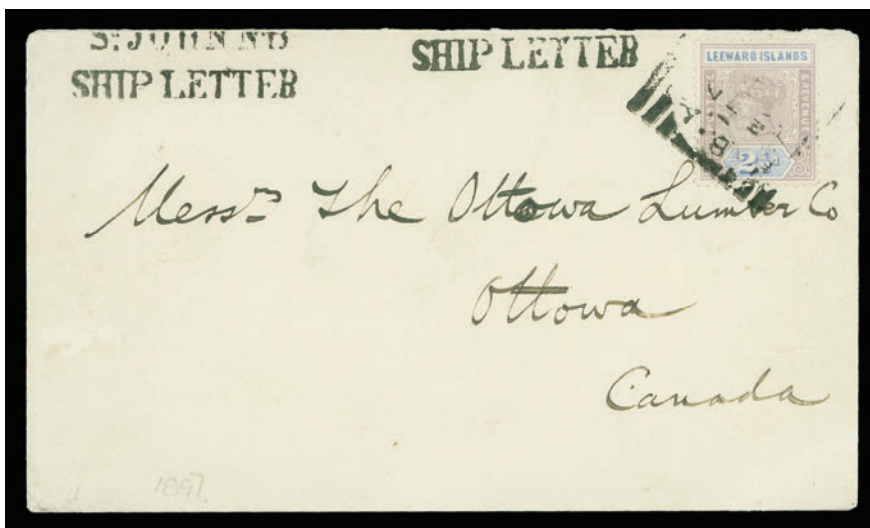 ST JOHN N B
SHIP LETTER
SHIP LETTER
LEEWARD ISLANDS
& REVENUE
2½d
Messrs The Ottowa Lumber Co
Ottowa
Canada
1897.